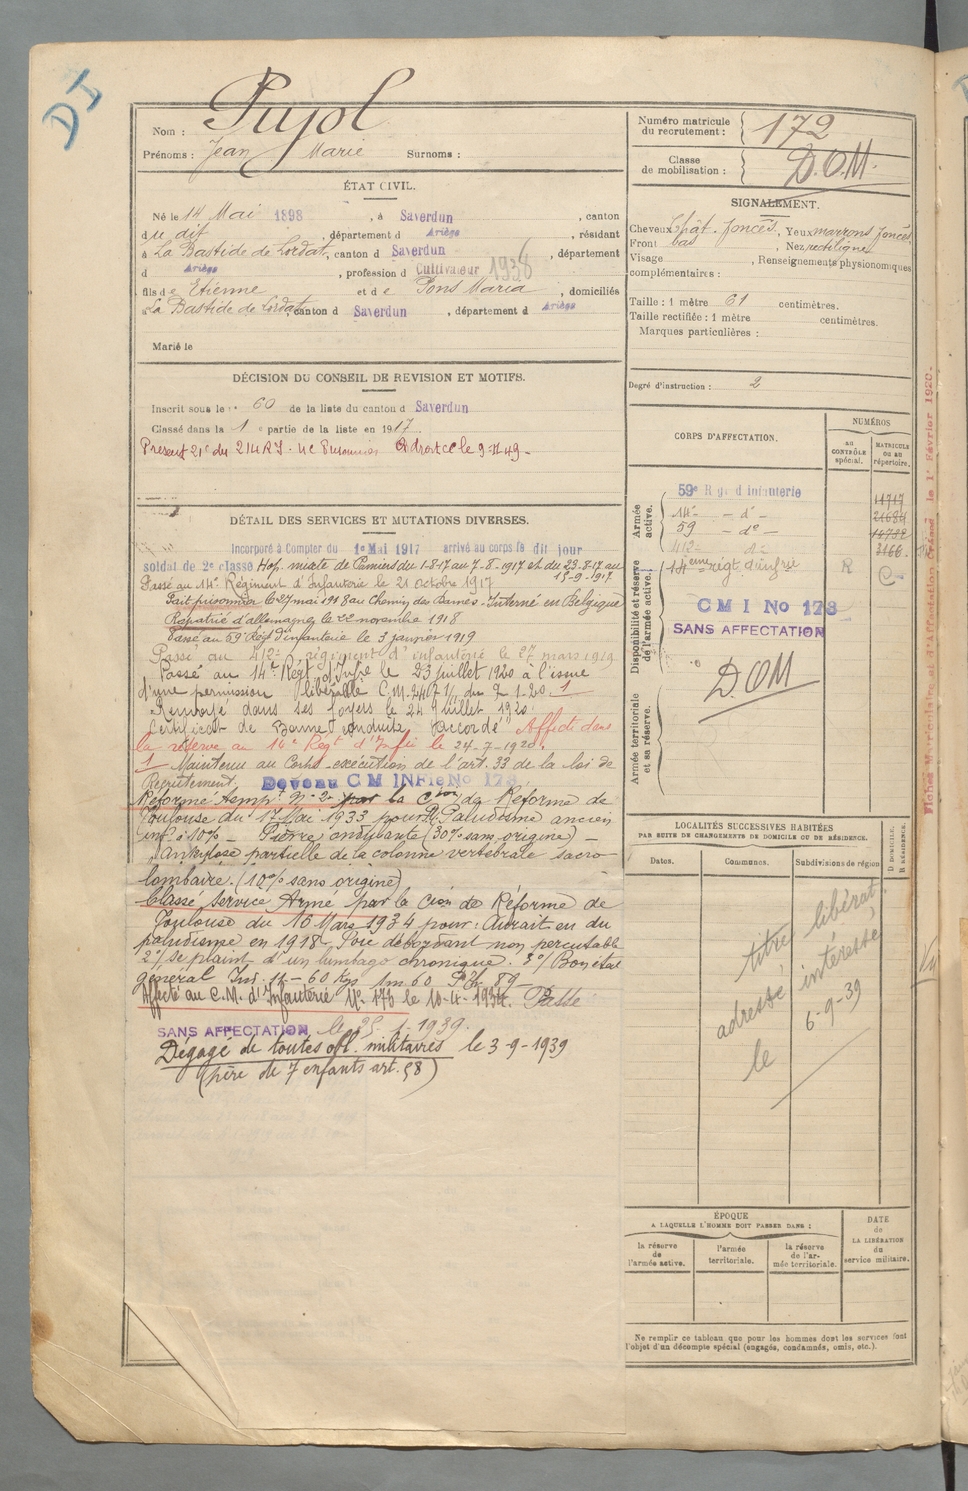 DI
Nom : Pujol
Prénoms : Jean Marie Surnoms :
ÉTAT CIVIL.
Né le 14 Mai 1898, à Saverdun, canton
du dit, département d Ariège, résidant
à La Bastide de Lordat, canton d Saverdun, département
d Ariège, profession d Cultivateur 1938
fils de Etienne et de Pons Maria, domiciliés
à La Bastide de Lordat, canton d Saverdun, département d Ariège
Marié le
DÉCISION DU CONSEIL DE REVISION ET MOTIFS.
Inscrit sous le n° 60 de la liste du canton d Saverdun
Classé dans la 1e partie de la liste en 1917.
Présent 21e du 214 R.I.
DÉTAIL DES SERVICES ET MUTATIONS DIVERSES.
Incorporé à Compter du 1er Mai 1917 arrivé au corps le dit jour
soldat de 2e classe Hop. mixte de Pamiers du 1-8-17 au 7-8-1917 et du 23-8-17 au
15-9-1917
Passé au 14e Régiment d'Infanterie le 21 octobre 1917
Fait prisonnier le 27 mai 1918 au Chemin des Dames - Interné en Belgique
Rapatrié d'allemagne le 22 novembre 1918
Passé au 59e Régt d'infanterie le 3 janvier 1919
Passé au 412e régiment d'infanterie le 27 mars 1919
Passé au 14e Régt d'Infie le 23 juillet 1920 à l'issue
d'une permission libérable C.M. 2407 1/1 du 7-1-20. 1
Renvoyé dans ses foyers le 24 Juillet 1920.
Certificat de Bonne Conduite "Accordé" Affecté dans
la réserve au 14e Régt d'Infie le 24-7-1920.
1 Maintenu au Corps exécution de l'art. 33 de la loi de
Recrutement. Devenu C M INFie No 173
Réformé tempre n° 2 par la Cion de Réforme de
Toulouse du 17 Mai 1933 pour 1° Paludisme ancien
inf. à 10% - Fièvre ondulante (30% sans origine) -
Ankylose partielle de la colonne vertébrale sacro
lombaire. (10% sans origine)
Classé Service Armé par la Cion de Réforme de
Toulouse du 16 Mars 1934 pour : Aurait eu du
paludisme en 1918. Foie débordant non percutable
2°/ se plaint d'un lumbago chronique. 3°/ Bon état
général - 60 Kgs 1m60
Affecté au C.M. d'Infanterie N° 173 le 10-4-1934. Passé
SANS AFFECTATION le 1-1939.
Dégagé de toutes obl. militaires le 3-9-1939
(père de 7 enfants art. 58)
Numéro matricule du recrutement : 172
Classe de mobilisation : D.O.M.
SIGNALEMENT.
Cheveux Chât. foncés, Yeux marrons foncés
Front bas, Nez rectiligne
Visage , Renseignements physionomiques
complémentaires :
Taille : 1 mètre 61 centimètres.
Taille rectifiée : 1 mètre centimètres.
Marques particulières :
Degré d'instruction : 2
CORPS D'AFFECTATION.
NUMÉROS
au CONTRÔLE spécial.
MATRICULE ou au répertoire.
Armée active.
59e Rgt d infanterie
14e - do -
59 - do -
412e do
3166.
Disponibilité et réserve de l'armée active.
14eme régt d'infrie R
C M I No 173
SANS AFFECTATION
DOM
Armée territoriale et sa réserve.
LOCALITÉS SUCCESSIVES HABITÉES
PAR SUITE DE CHANGEMENTS DE DOMICILE OU DE RÉSIDENCE.
Dates.
Communes.
Subdivisions de région
D DOMICILE,
R RÉSIDENCE.
titre libérat.
adressé intéressé
le 6-9-39
ÉPOQUE
A LAQUELLE L'HOMME DOIT PASSER DANS :
la réserve de l'armée active.
l'armée territoriale.
la réserve de l'armée territoriale.
DATE de LA LIBÉRATION du service militaire.
Ne remplir ce tableau que pour les hommes dont les services font
l'objet d'un décompte spécial (engagés, condamnés, omis, etc.).
Fiches Matriculaire et d'Affectation Créand le 1er Février 1920.